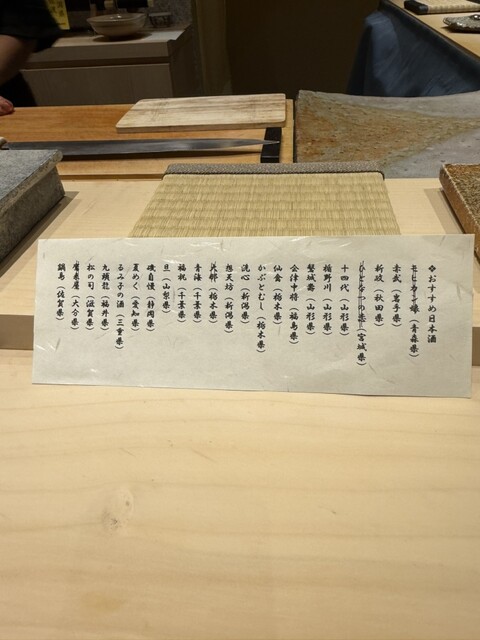 ❖おすすめ日本酒
モヒカン娘（青森県）
赤武（岩手県）
新政（秋田県）
ひと夏の恋（宮城県）
十四代（山形県）
楯野川（山形県）
磐城壽（山形県）
会津中将（福島県）
仙禽（栃木県）
かぶとむし（栃木県）
洗心（新潟県）
想天坊（新潟県）
大那（栃木県）
青海（千葉県）
福祝（千葉県）
旦（山梨県）
磯自慢（静岡県）
夏めく（愛知県）
るみ子の酒（三重県）
九頭龍（福井県）
松の司（滋賀県）
鷹来屋（大分県）
鍋島（佐賀県）